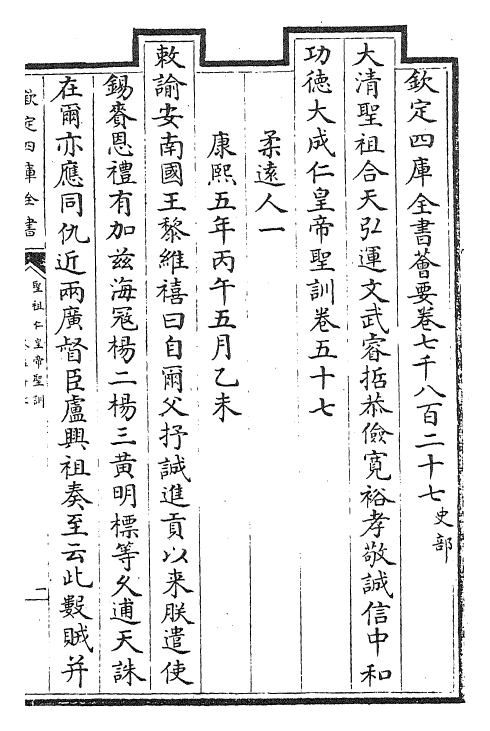 欽定四庫全書薈要卷七千八百二十七 史部
大清聖祖合天弘運文武睿哲恭儉寬裕孝敬誠信中和
功德大成仁皇帝聖訓卷五十七
柔遠人一
康熙五年丙午五月乙未
敕諭安南國王黎維禧曰自爾父抒誠進貢以來朕遣使
錫賚恩禮有加茲海冦楊二楊三黃明標等久逋天誅
在爾亦應同仇近兩廣督臣盧興祖奏至云此數賊并
欽定四庫全書
聖祖仁皇帝聖訓